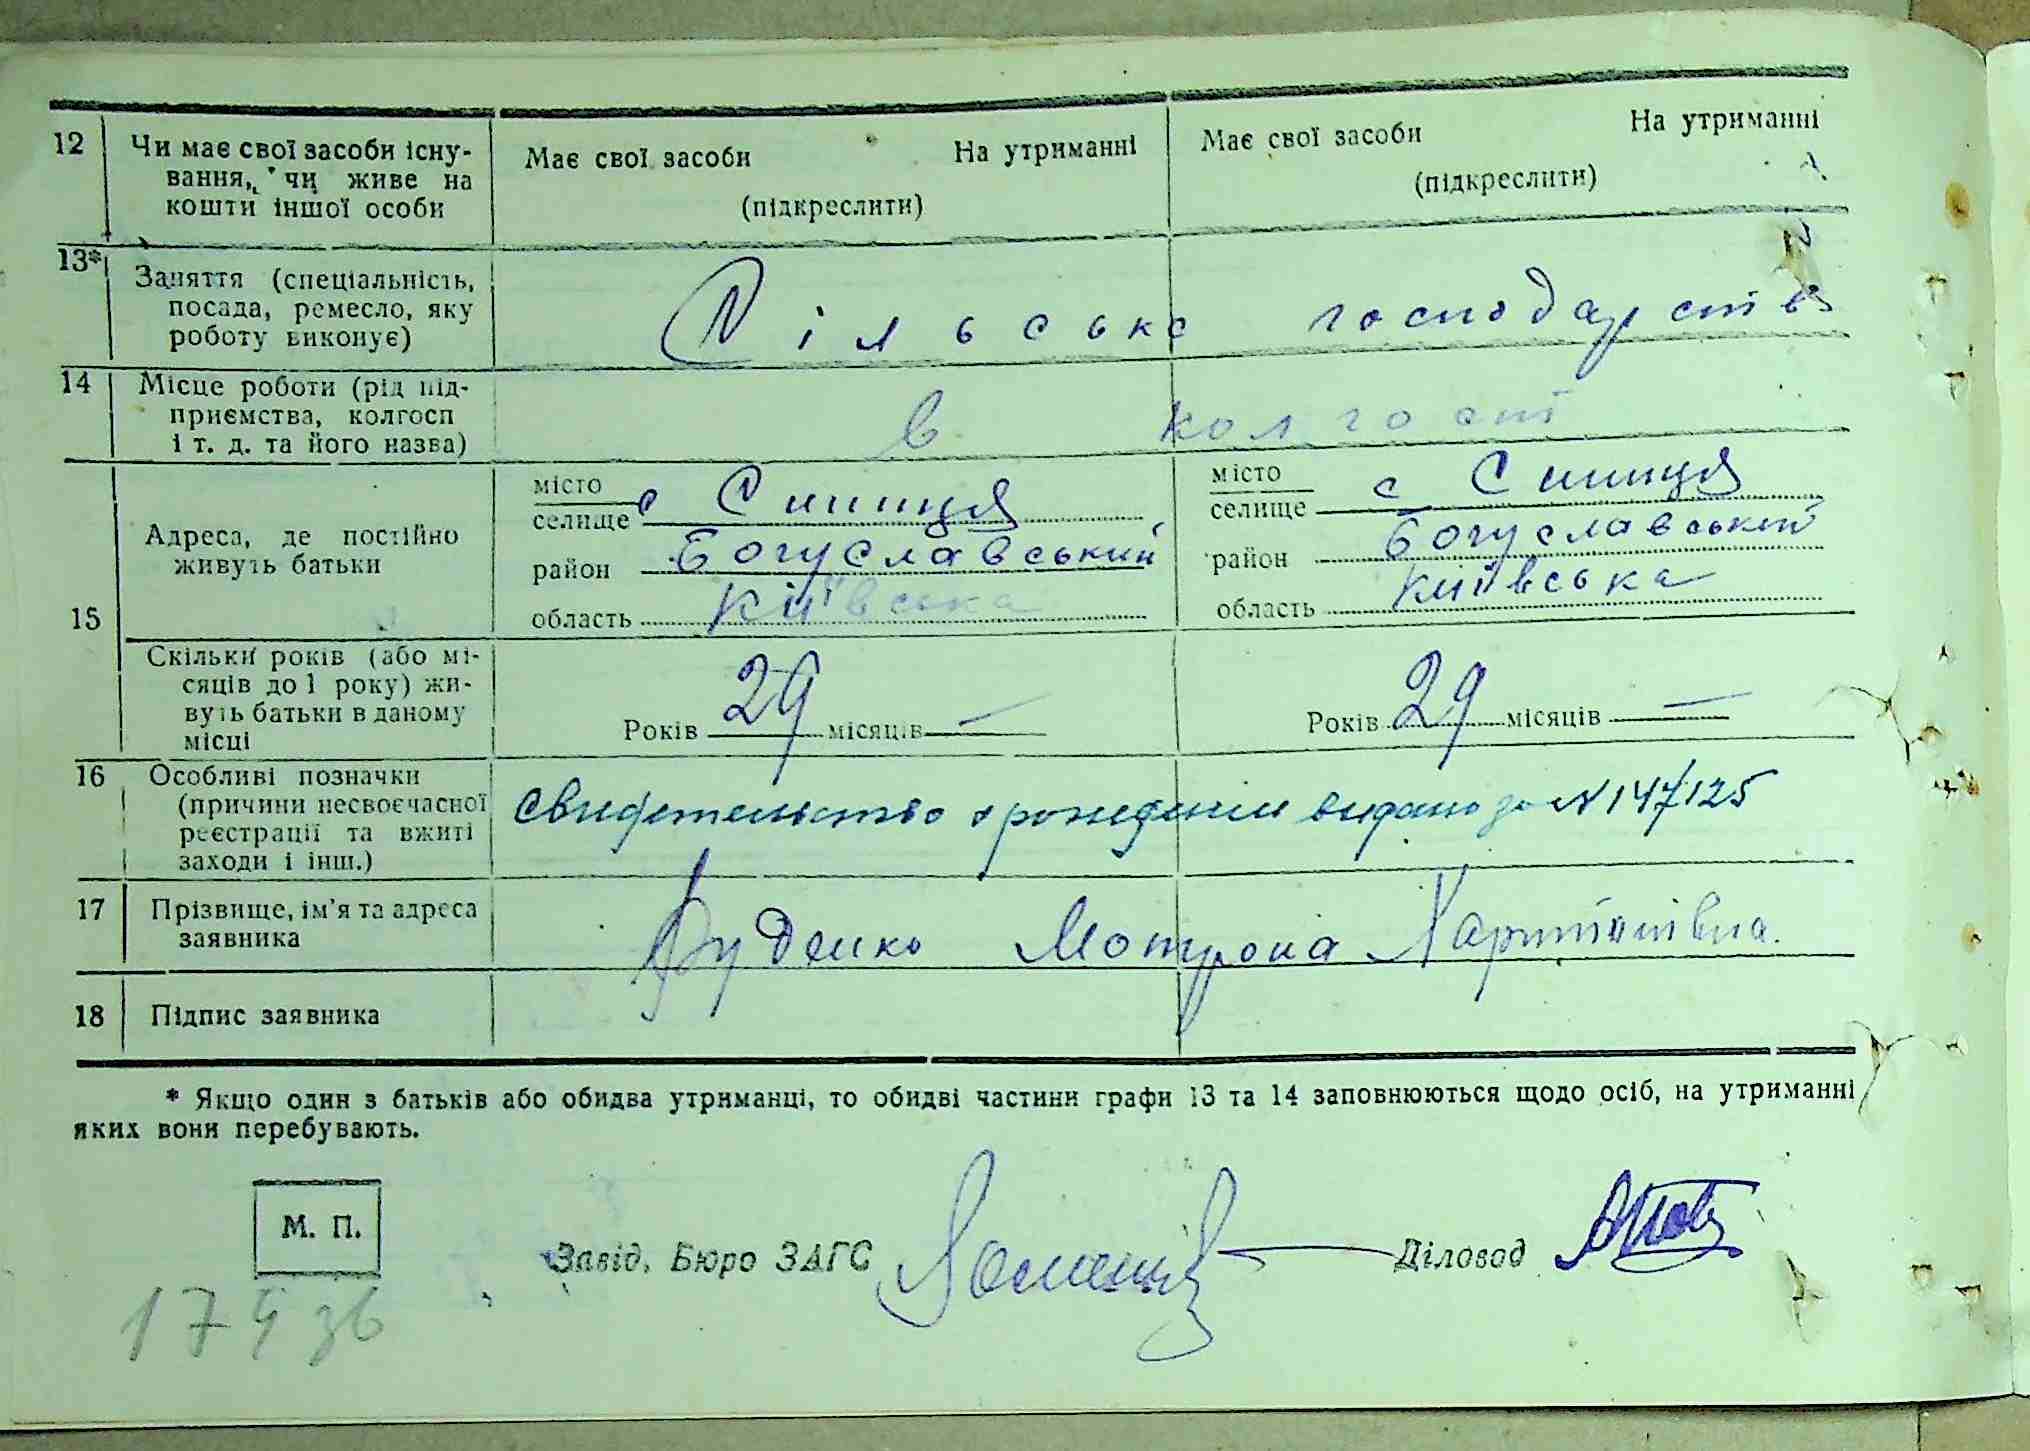 12 Чи має свої засоби існу- Має свої засоби На утриманні Має свої засоби На утриманні
вання, чи живе на
кошти іншої особи (підкреслити) (підкреслити)
13* Заняття (спеціальність,
посада, ремесло, яку Сільське господарство
роботу виконує)
14 Місце роботи (рід під-
приємства, колгосп в колгоспі
і т. д. та його назва)
15 Адреса, де постійно живуть батьки
місто
селище с Синиця
район Богуславський
область Київська
місто
селище с Синиця
район Богуславський
область Київська
Скільки років (або мі-
сяців до 1 року) жи-
вуть батьки в даному
місці
Років 29 місяців —
Років 29 місяців —
16 Особливі позначки
(причини несвоєчасної
реєстрації та вжиті
заходи і інш.)
свидетельство о рождении видано за N 147125
17 Прізвище, ім'я та адреса
заявника
Руденко Мотрона Харитонівна.
18 Підпис заявника
* Якщо один з батьків або обидва утриманці, то обидві частини графи 13 та 14 заповнюються щодо осіб, на утриманні
яких вони перебувають.
М. П.
Завід. Бюро ЗАГС Діловод